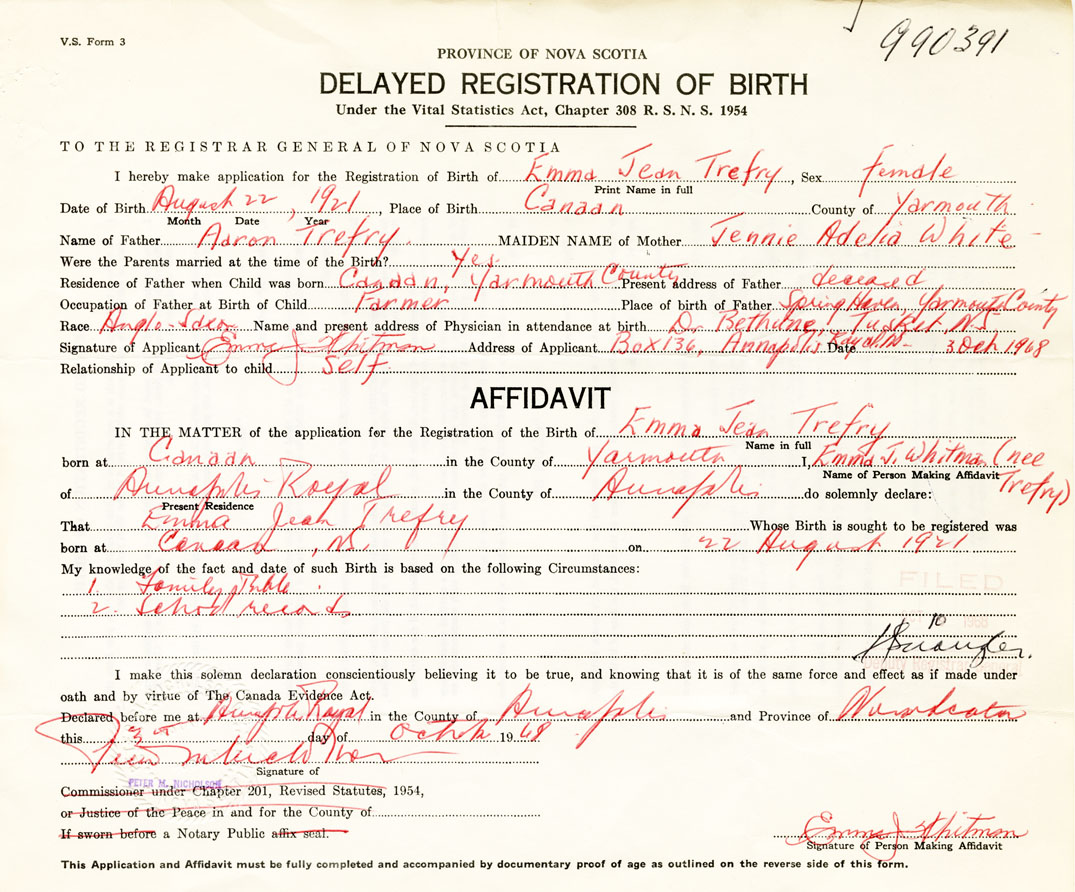 V.S. Form 3
990391
PROVINCE OF NOVA SCOTIA
DELAYED REGISTRATION OF BIRTH
Under the Vital Statistics Act, Chapter 308 R. S. N. S. 1954
TO THE REGISTRAR GENERAL OF NOVA SCOTIA
I hereby make application for the Registration of Birth of Emma Jean Trefry, Sex Female
Print Name in full
Date of Birth August 22, 1921, Place of Birth Canaan County of Yarmouth
Month Date Year
Name of Father Aaron Trefry. MAIDEN NAME of Mother Jennie Adelia White
Were the Parents married at the time of the Birth? Yes.
Residence of Father when Child was born Canaan, Yarmouth County Present address of Father deceased
Occupation of Father at Birth of Child Farmer Place of birth of Father Spring Haven, Yarmouth County
Race Anglo-Saxon Name and present address of Physician in attendance at birth Dr Bethune, Tusket NS
Signature of Applicant Emma J Whitman Address of Applicant Box 136, Annapolis Royal NS Date 3 Oct 1968
Relationship of Applicant to child Self
AFFIDAVIT
IN THE MATTER of the application for the Registration of the Birth of Emma Jean Trefry
Name in full
born at Canaan in the County of Yarmouth I, Emma J. Whitman (nee Trefry)
Name of Person Making Affidavit
of Annapolis Royal in the County of Annapolis do solemnly declare:
Present Residence
That Emma Jean Trefry Whose Birth is sought to be registered was
born at Canaan, NS on 22 August 1921
My knowledge of the fact and date of such Birth is based on the following Circumstances:
1. Family Bible
2. School records
FILED
10 1968
Deputy Registrar
I make this solemn declaration conscientiously believing it to be true, and knowing that it is of the same force and effect as if made under
oath and by virtue of The Canada Evidence Act.
Declared before me at Annapolis Royal in the County of Annapolis and Province of Nova Scotia
this 3rd day of October 1968
Signature of
PETER M. NICHOLSON
Commissioner under Chapter 201, Revised Statutes, 1954,
or Justice of the Peace in and for the County of
If sworn before a Notary Public affix seal.
Emma J Whitman
Signature of Person Making Affidavit
This Application and Affidavit must be fully completed and accompanied by documentary proof of age as outlined on the reverse side of this form.